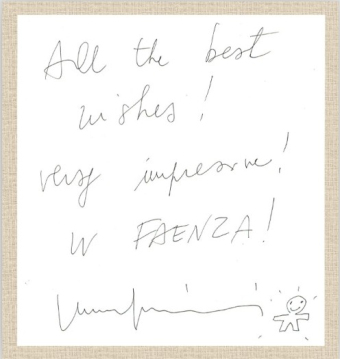 All the best
wishes!
very impressive!
W FAENZA!